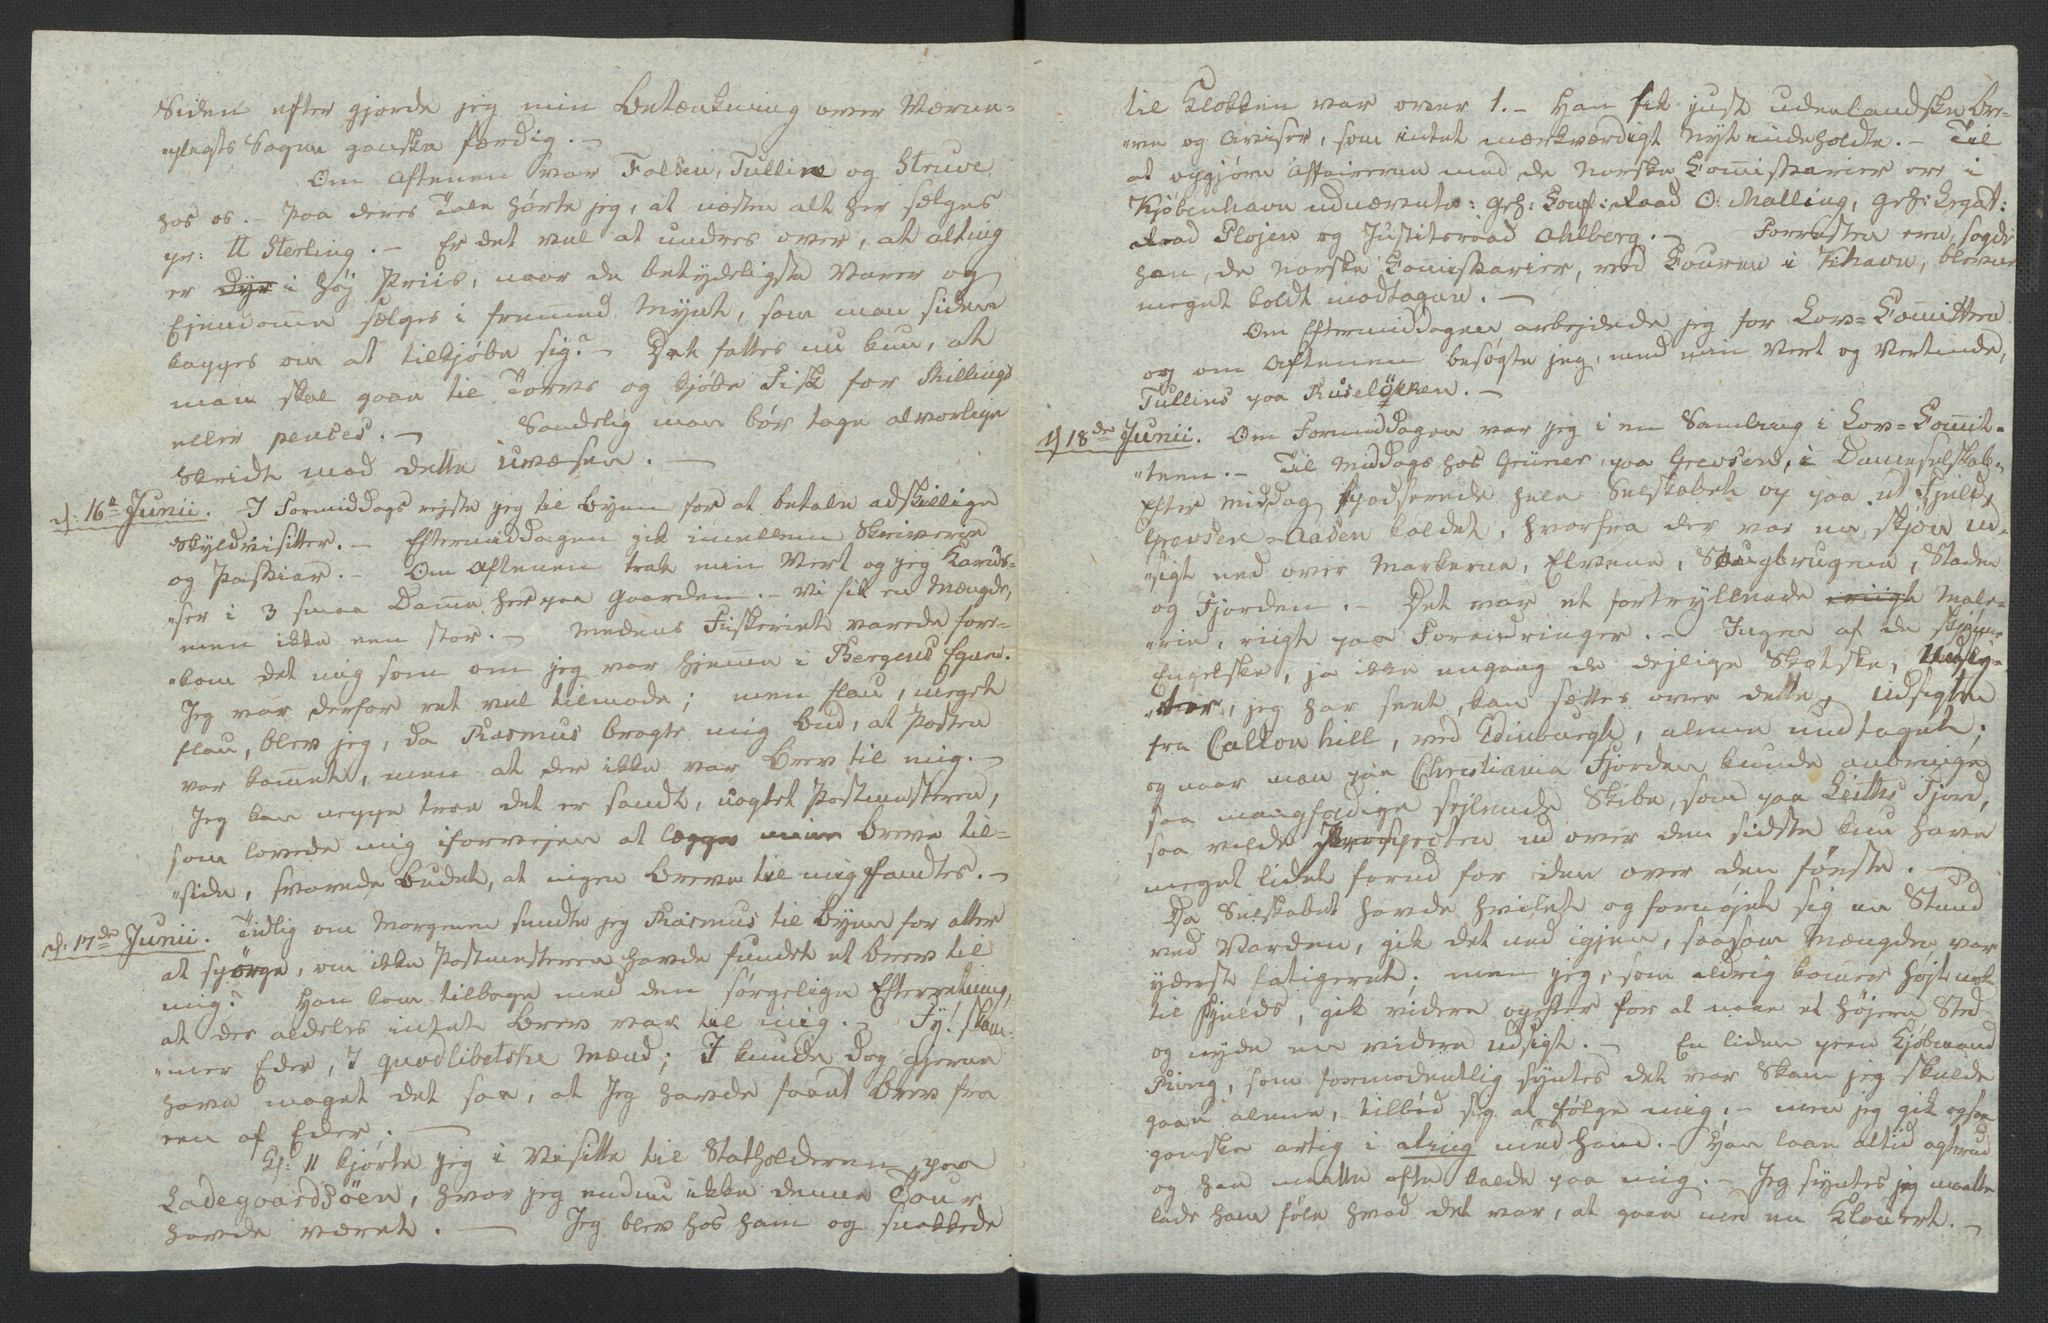 Siden efter gjorde jeg min Betænkning over Værne-
"pligts Sagen ganske færdig. –
Om Aftenen var Falsen, Tullin og Struve
hos os. – Paa deres Tale hørte jeg, at næsten alt her sælges
pr: ℔ Sterling. – Er det vel at undres over, at alting
er dyr i høj Priis, naar de betydeligste Varer og
Ejendomme sælges i fremmed Mynt, som man siden
kappes om at tilkjøbe sig? – Det fattes nu kun, at
man skal gaae til Torvs og kjøbe Fisk for Skillings
eller pences. – Sandelig man bør tage alvorlige
Skridt mod dette Uvæsen. –
d: 16de Junii. I Formiddags rejste jeg til Byen for at betale adskillige
Skyldvisitter. – Eftermiddagen gik imellem Skriverie
og Passiar. – Om Aftenen trak min Vert og jeg Karus-
"ser i 3 smaa Damme her paa Gaarden. – Vi fik en Mængde,
men ikke een stor. – Medens Fiskeriet varede fore-
"kom det mig som om jeg var hjemme i Bergens Egne.
Jeg var derfor ret vel tilmode; men flau, meget
flau, blev jeg, da Rasmus bragte mig Bud, at Posten
var kommet, men at der ikke var Brev til mig. –
Jeg kan neppe troe det er sandt, uagtet Postmesteren,
som lovede mig iforvejen at lægge mine Breve til-
"side, svarede Budet, at ingen Breve til mig fandtes. –
d: 17de Junii. Tidlig om Morgenen sendte jeg Rasmus til Byen for atter
at spørge, om ikke Postmesteren havde fundet et Brev til
mig? Han kom tilbage med den sørgelige Efterretning,
at der aldeles intet Brev var til mig. – Fy! skam-
"mer Eder, I quodlibetske Mænd; I kunde dog gjerne
have maget det saa, at Jeg havde faaet Brev fra
een af Eder. –
Kl: 11 kjørte jeg i Visitte til Statholderen paa
Ladegaardsöen, hvor jeg endnu ikke denne Tour
havde været. – Jeg blev hos ham og snakkede
til Klokken var over 1. – Han fik just udenlandske Bre-
"ve og Aviser, som intet mærkværdigt Nyt indeholdte. – Til
at opgjøre Affairerne med de Norske Commissarier ere i
Kjøbenhavn udnævnte: Geh: Conf: Raad O: Malling, Geh: Legat:
Raad Plojen og Justitsraad Ahlberg. – Forresten ere, sagde
han, de Norske Commissarier, ved Couren i Khavn, blevne
meget koldt modtagen. –
Om Eftermiddagen arbejdede jeg for Lov-Comitteen
og om Aftenen besøgte jeg, med min Vert og Vertinde,
Tullins paa Ruseløkken. –
d: 18de Junii. Om Formiddagen var jeg i en Samling i Lov-Comit-
"teen. – Til Middags hos Grüner, paa Grevsen, i Dameselskab.
Efter Middag spadserede hele Selskabet op paa et Fjeld,
Grevsen-Aasen kaldet, hvorfra der var en skjøn Ud-
"sigt ned over Markerne, Elvene, Saugbrugene, Staden
og Fjorden. – Det var et fortryllende Male-
"rie, riigt paa Forandringer. – Ingen af de skjønne
Engelske, ja ikke engang de dejlige Skotske, Udsig-
"ter, jeg har seet, kan sættes over dette, Udsigten
fra Calton hill, ved Edinburgh, alene undtagen;
og naar man paa Christiania Fjorden kunde anbringe
saa mangfoldige sejlende Skibe, som paa Leiths Fjord,
saa vilde Prospecten ud over den sidste kun have
meget lidet forud for den over den første. –
Da Selskabet havde hvilet og fornøjet sig en Stund
ved Varden, gik det ned igjen, saasom Mængden var
yderst fatigeret; men jeg, som aldrig kommer højt nok
til Fjelds, gik videre opefter for at naae et højere Sted
og nyde en videre Udsigt. – En liden peen Kjøbmand
Ring, som formodentlig syntes det var Skam jeg skulde
gaae alene, tilbød sig at følge mig; – men jeg gik ogsaa
ganske artig i Ring med ham. – Han laae altid agterud
og han maatte ofte kalde paa mig. – Jeg syntes jeg maatte
lade ham føle hvad det var, at gaae med en Klouert. –